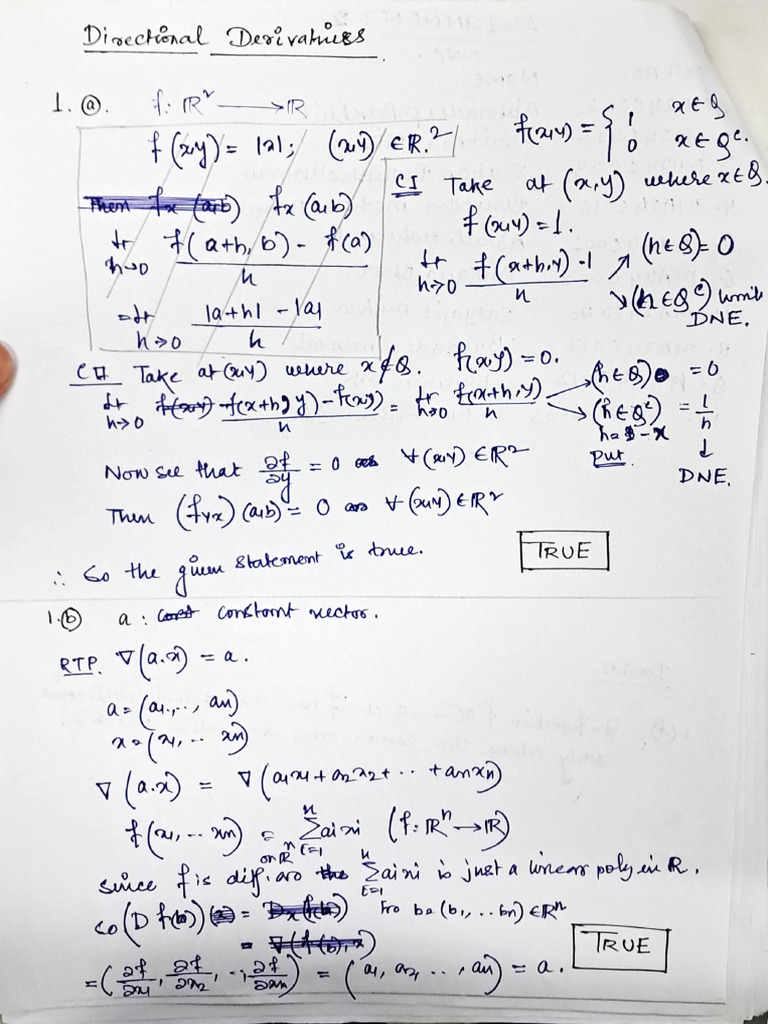 Directional Derivatives
1. ⓐ. f: ℝ² ⟶ ℝ
f(x,y) = |x|; (x,y) ∈ ℝ²
f(x,y) = { 1 x ∈ Q
0 x ∈ Qᶜ.
Then fx (a,b) fx (a,b)
lt h→0 f(a+h, b) - f(a) / h
= lt h→0 |a+h| - |a| / h
C I Take at (x,y) where x ∈ Q.
f(x,y) = 1.
lt h→0 f(x+h,y) - 1 / h ↗ (h ∈ Q) = 0
↘ (h ∈ Qᶜ) limit DNE.
C II Take at (x,y) where x ∉ Q. f(x,y) = 0.
lt h→0 f(x+h, y) - f(x,y) / h = lt h→0 f(x+h,y) / h ↗ (h ∈ Q) = 0
↘ (h ∈ Qᶜ) = 1/h
h = - x
put.
↓
DNE.
Now see that ∂f/∂y = 0 ∀ (x,y) ∈ ℝ²
Then (fyx)(a,b) = 0 ∀ (x,y) ∈ ℝ²
∴ So the given statement is true. TRUE
1. ⓑ a : const constant vector.
RTP. ∇(a.x) = a.
a = (a1, .., an)
x = (x1, .. xn)
∇(a.x) = ∇(a1x1 + a2x2 + .. + anxn)
f(x1, .. xn) = n Σ i=1 aixi (f: ℝⁿ → ℝ)
since f is diff. on ℝⁿ the n Σ i=1 aixi is just a linear poly in ℝ.
so (D f(b)) (x) = Dx f(b) b = (b1, .. bn) ∈ ℝⁿ
= ∇(f(b), x)
= (∂f/∂x1, ∂f/∂x2, .., ∂f/∂xn) = (a1, a2, .., an) = a. TRUE